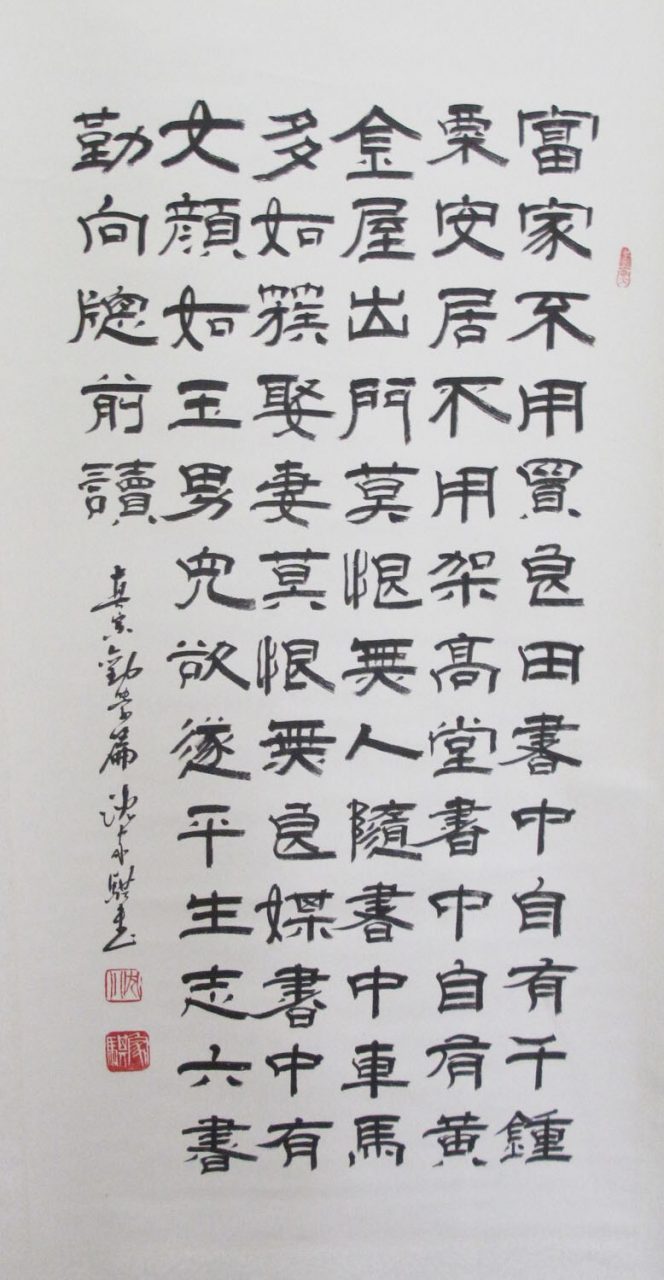 富家不用買良田書中自有千鍾
粟安居不用架高堂書中自有黃
金屋出門莫恨無人隨書中車馬
多如簇娶妻莫恨無良媒書中有
女顏如玉男兒欲遂平生志六書
勤向牕前讀
真宗勸學篇 沈家騏書